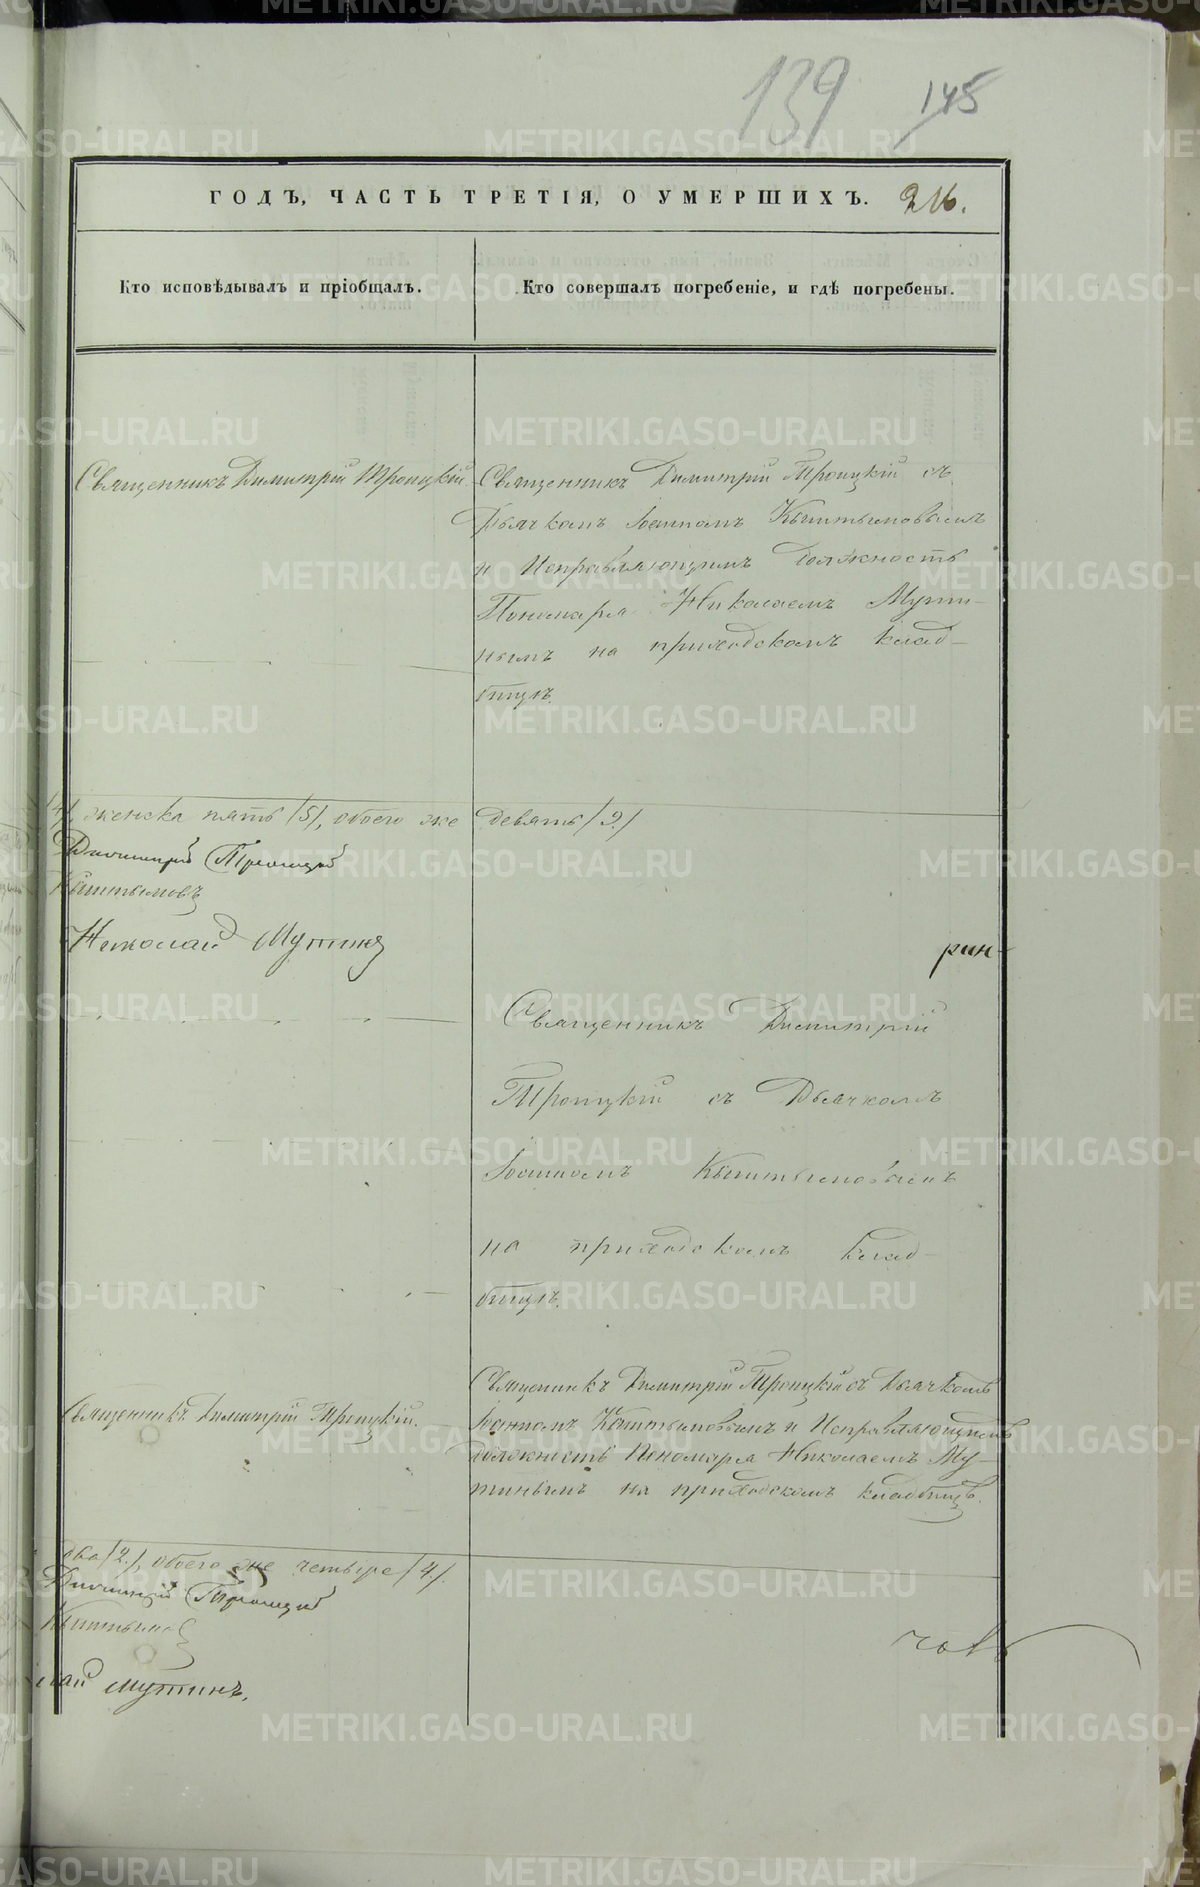 139 145
ГОДЪ, ЧАСТЬ ТРЕТІЯ, О УМЕРШИХЪ. 216.
Кто исповѣдывалъ и пріобщалъ.
Кто совершалъ погребеніе, и гдѣ погребены.
Священникъ Димитрій Троицкій.
Священникъ Димитрій Троицкій съ
Дьячкомъ Іоанномъ Кыштымовымъ
и Исправляющимъ должность
Пономаря Николаемъ Мути-
нымъ на приходскомъ клад-
бищѣ.
/4/, женска пять /5/, обоего же девять /9/
Димитрій Троицкій
Кыштымовъ
Николай Мутинъ
рин-
Священникъ Димитрій
Троицкій съ Дьячкомъ
Іоанномъ Кыштымовымъ
на приходскомъ клад-
бищѣ.
Священникъ Димитрій Троицкій.
Священникъ Димитрій Троицкій съ Дьячкомъ
Іоанномъ Кыштымовымъ и Исправляющимъ
должность Пономаря Николаемъ Му-
тинымъ на приходскомъ кладбищѣ.
два /2/, обоего же четыре /4/.
Димитрій Троицкій
Кыштымовъ
лай Мутинъ.
METRIKI.GASO-URAL.RU